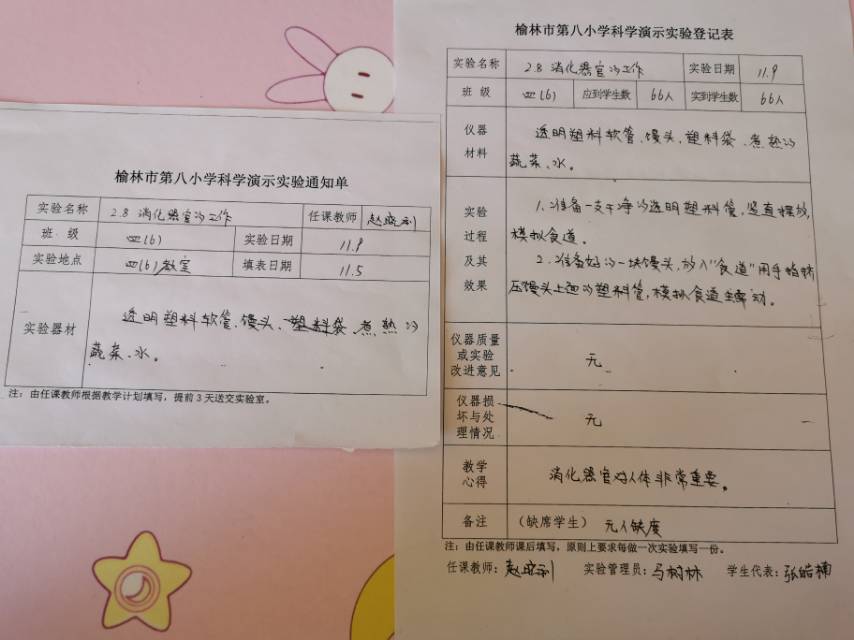 榆林市第八小学科学演示实验通知单
实验名称 2.8 消化器官的工作 任课教师
班 级 四(6) 实验日期 11.9
实验地点 四(6)教室 填表日期 11.5
实验器材 透明塑料软管、馒头、塑料袋、煮熟的
蔬菜、水。
注：由任课教师根据教学计划填写，提前3天送交实验室。
榆林市第八小学科学演示实验登记表
实验名称 2.8 消化器官的工作 实验日期 11.9
班 级 四(6) 应到学生数 66人 实到学生数 66人
仪器
材料
透明塑料软管、馒头、塑料袋、煮熟的
蔬菜、水。
实验
过程
及其
效果
1.准备一支干净的透明塑料管，竖直摆放，
模拟食道。
2.准备好的一块馒头，放入“食道”用手挤
压馒头上边的塑料管，模拟食道蠕动。
仪器质量
或实验
改进意见
无
仪器损
坏与处
理情况
无
教学
心得
消化器官对人体非常重要。
备注 （缺席学生） 无人缺席
注：由任课教师课后填写，原则上要求每做一次实验填写一份。
任课教师： 实验管理员：马树林 学生代表：张皓楠